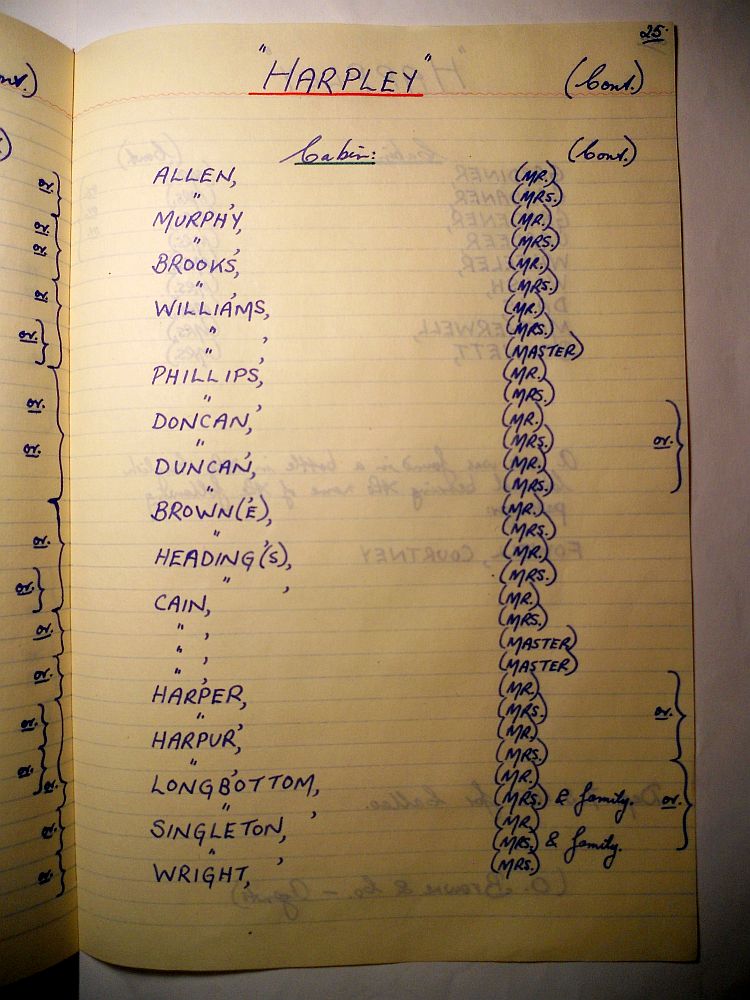 25.
"HARPLEY" (Cont.)
Cabin: (Cont.)
ALLEN, (MR.)
" , (MRS.)
MURPHY, (MR.)
" , (MRS.)
BROOKS, (MR.)
" , (MRS.)
WILLIAMS, (MR.)
" , (MRS.)
" , (MASTER)
PHILLIPS, (MR.)
" , (MRS.)
DONCAN, (MR.)
" , (MRS.) or.
DUNCAN, (MR.)
" , (MRS.)
BROWN(E), (MR.)
" , (MRS.)
HEADING(S), (MR.)
" , (MRS.)
CAIN, (MR.)
" , (MRS.)
" , (MASTER)
" , (MASTER)
HARPER, (MR.)
" , (MRS.) or.
HARPUR, (MR.)
" , (MRS.)
LONGBOTTOM, (MR.)
" , (MRS.) & family. or.
SINGLETON, (MR.)
" , (MRS.) & family.
WRIGHT, (MRS.)